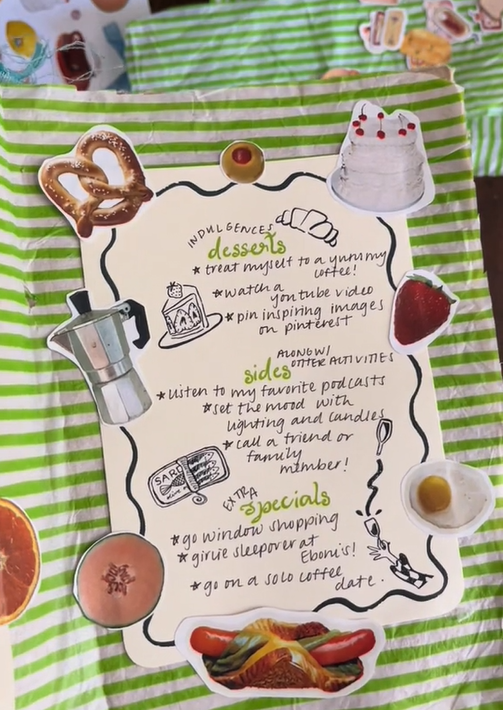 INDULGENCES
desserts
* treat myself to a yummy
coffee!
* watch a
youtube video
* pin inspiring images
on pinterest
ALONG W/
OTHER ACTIVITIES
sides
* listen to my favorite podcasts
* set the mood with
lighting and candles
* call a friend or
family
member!
SARD
EXTRA
specials
* go window shopping
* girlie sleepover at
Eboni's!
* go on a solo coffee
date.